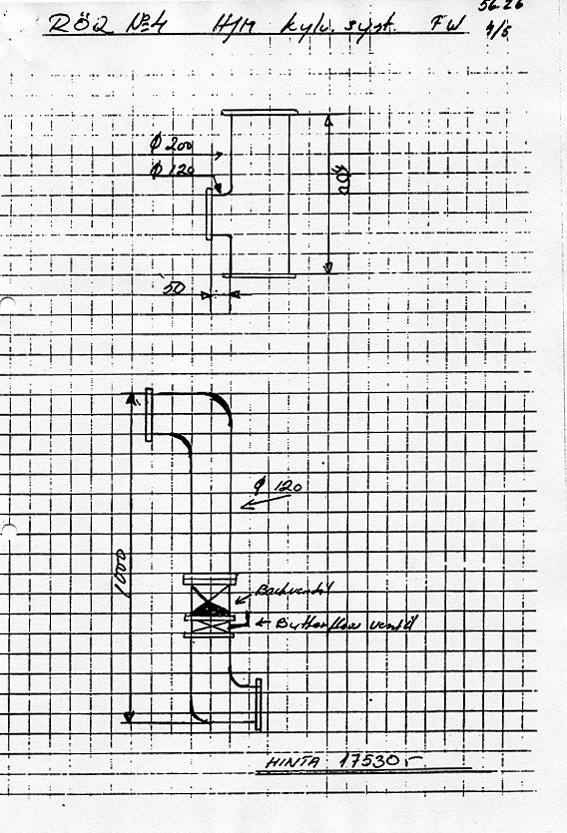 56.26
RÖR No 4 H/M kylv. syst. FW 4/5
φ 200
φ 120
400
50
φ 120
1000
Backventil
Butterflow ventil
HINTA 17530,-